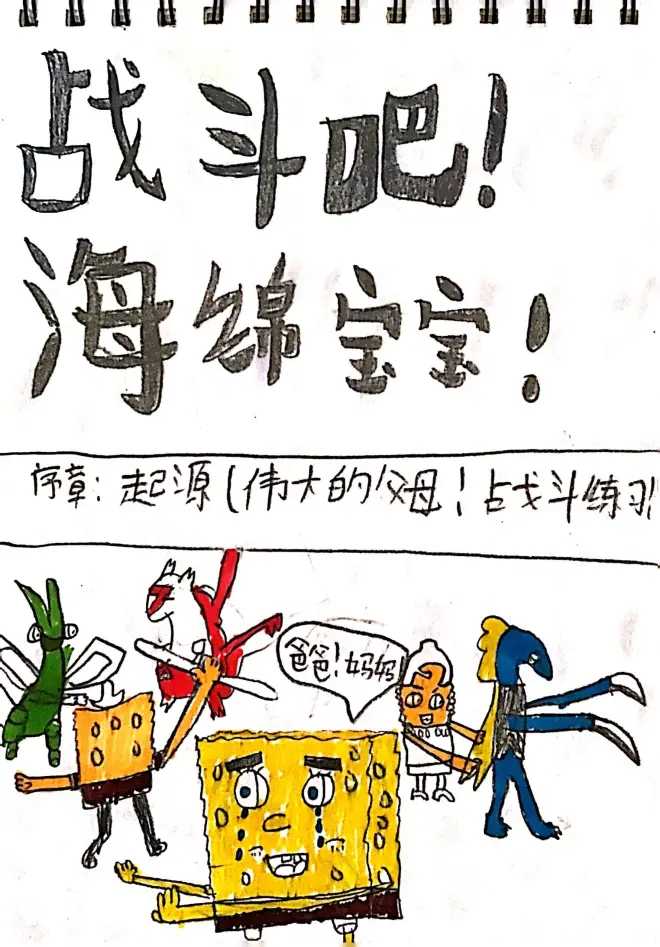 战斗吧!
海绵宝宝!
序章: 起源(伟大的父母! 战斗练习!
爸爸!妈妈